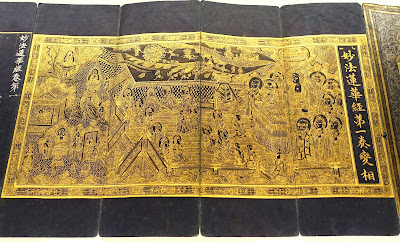 妙法蓮華經第一卷變相
妙法蓮華經卷第一